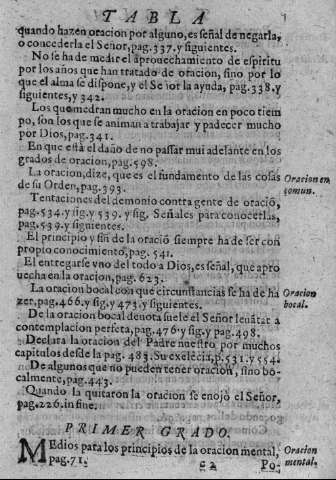 TABLA
quando hazen oracion por alguno, es señal de negarla,
o concederla el Señor, pag. 337. y siguientes.
No se ha de medir el aprouechamiento de espiritu
por los años que han tratado de oracion, sino por lo
que el alma se dispone, y el Señor la ayuda, pag. 338. y
siguientes, y 342.
Los que medran mucho en la oracion en poco tiem
po, son los que se animan a trabajar y padecer mucho
por Dios, pag. 341.
En que està el daño de no passar mui adelante en los
grados de oracion, pag. 598.
La oracion, dize, que es el fundamento de las cosas
de su Orden, pag. 393.
Oracion en
comun.
Tentaciones del demonio contra gente de oració,
pag. 534. y sig. y 539. y sig. Señales para conocerlas,
pag. 539. y siguientes.
El principio y fin de la oració siempre ha de ser con
proprio conocimiento, pag. 541.
El entregarse vno del todo a Dios, es señal, que apro
uecha en la oracion, pag. 623.
La oracion bocal con que circunstancias se ha de ha
zer, pag. 466. y sig. y 473. y siguientes.
Oracion
bocal.
De la oracion bocal deuota suele el Señor leuātar a
contemplacion perfeta, pag. 476. y sig. y pag. 498.
Declara la oracion del Padre nuestro por muchos
capitulos desde la pag. 483. Su exelēcia, p. 531. y 554.
De algunos que no pueden tener oracion, sino bo-
calmente, pag. 443.
Quando la quitaron la oracion se enojò el Señor,
pag. 226. in fine.
PRIMER GRADO.
Medios para los principios de la oracion mental,
pag. 71.
Oracion
mental.
c 2 Po-